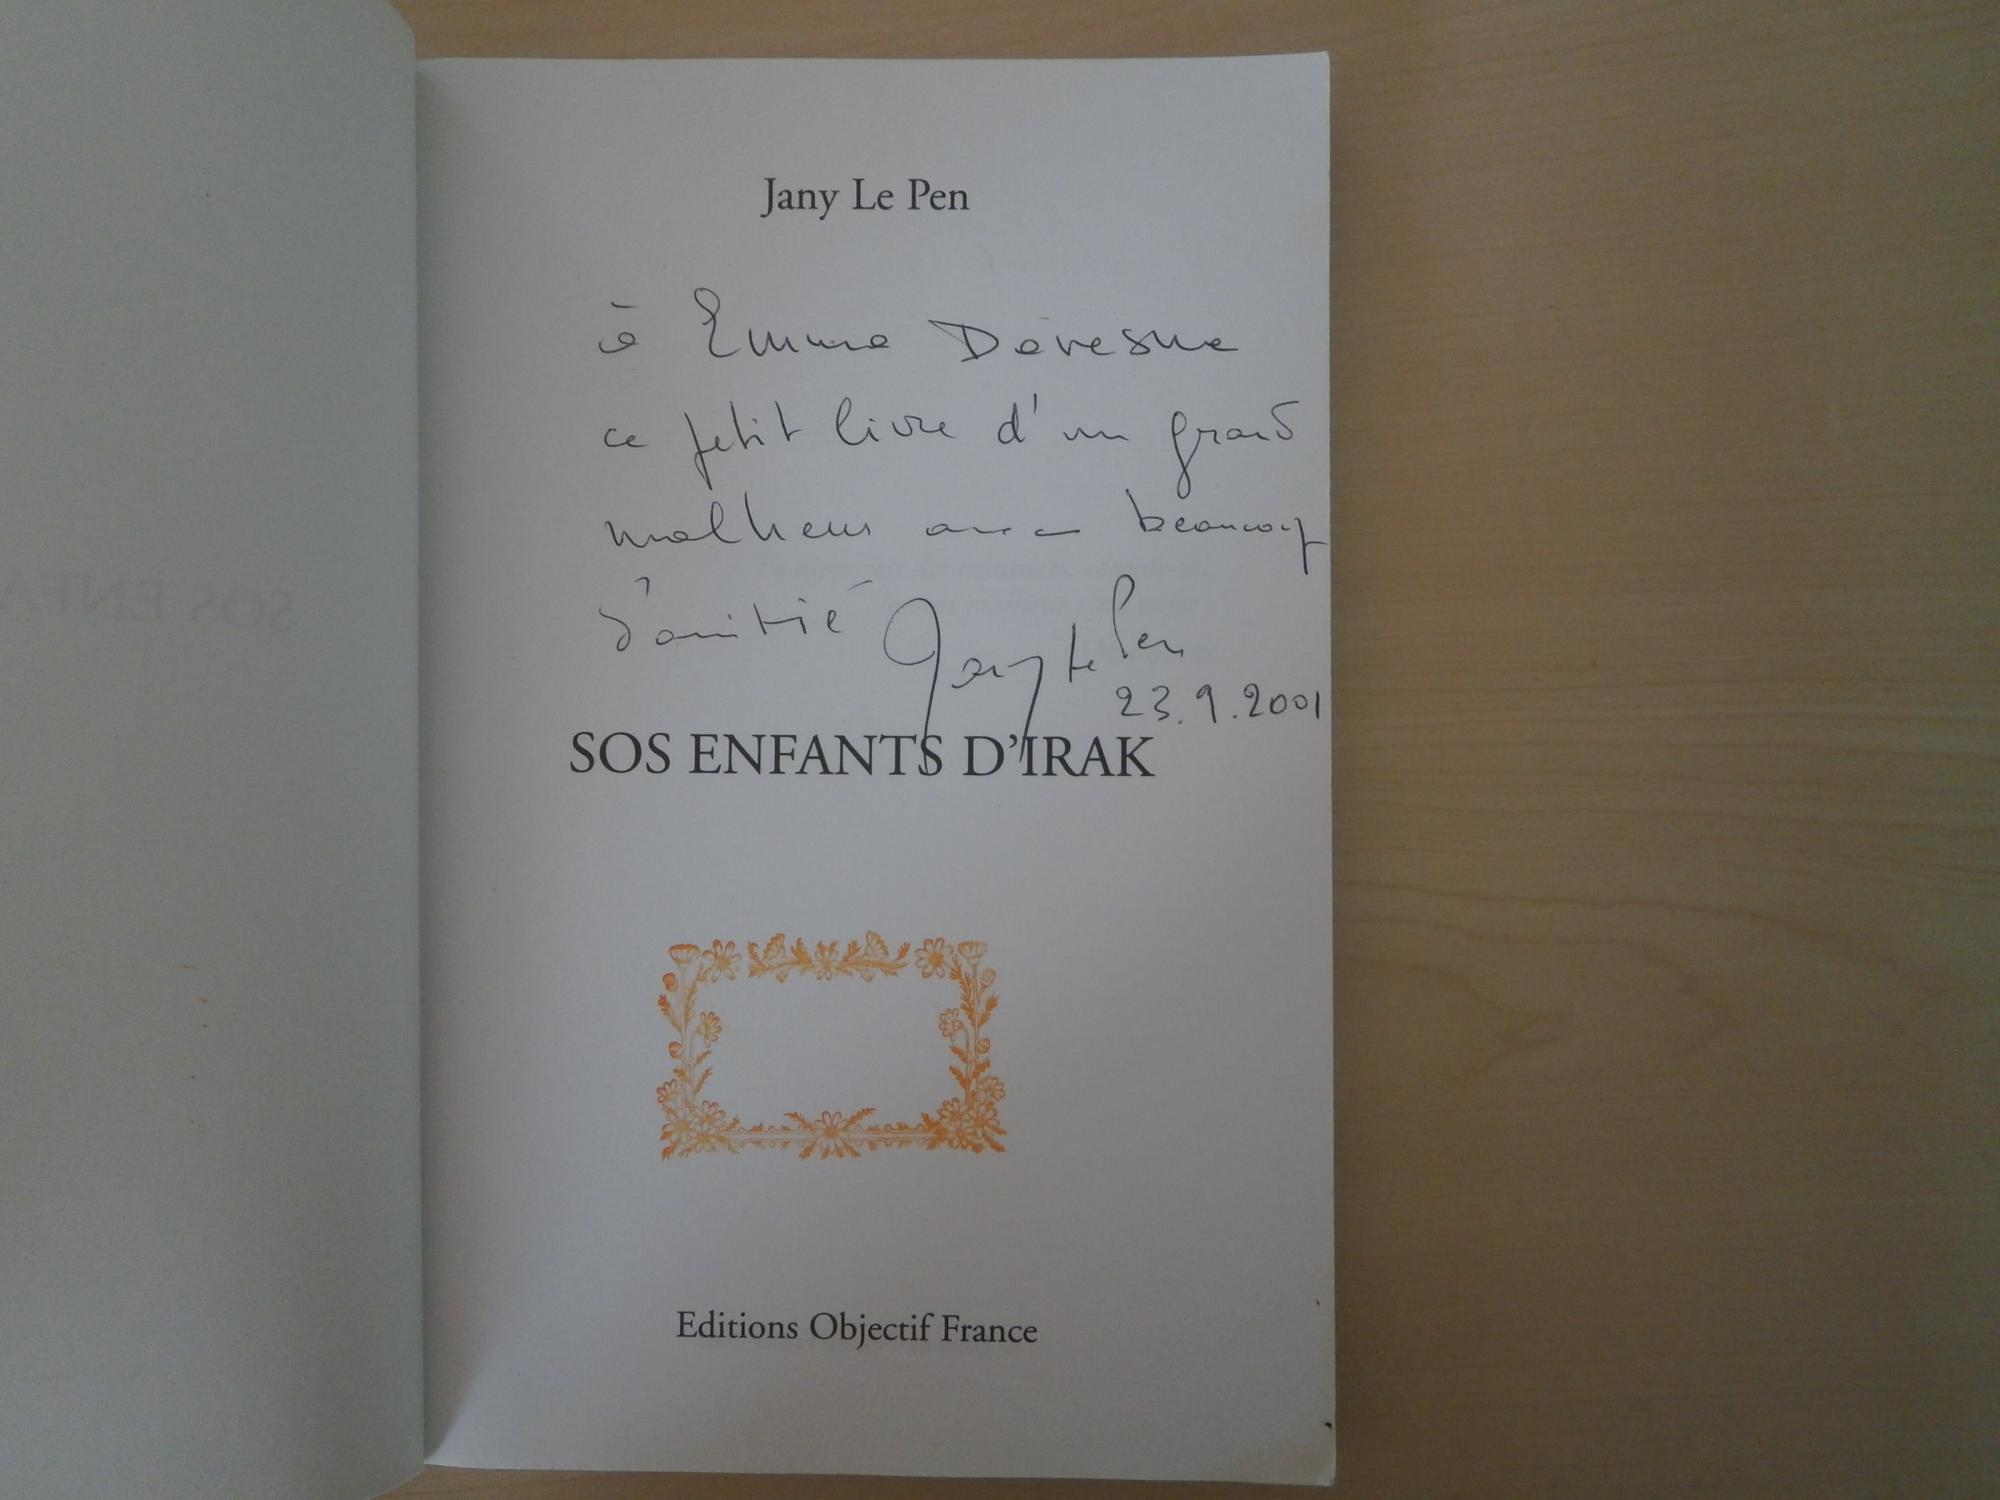 Jany Le Pen
à Emma Devesne
ce petit livre d'un grand
malheur avec beaucoup
d'amitié Jany Le Pen
23.9.2001
SOS ENFANTS D'IRAK
Editions Objectif France